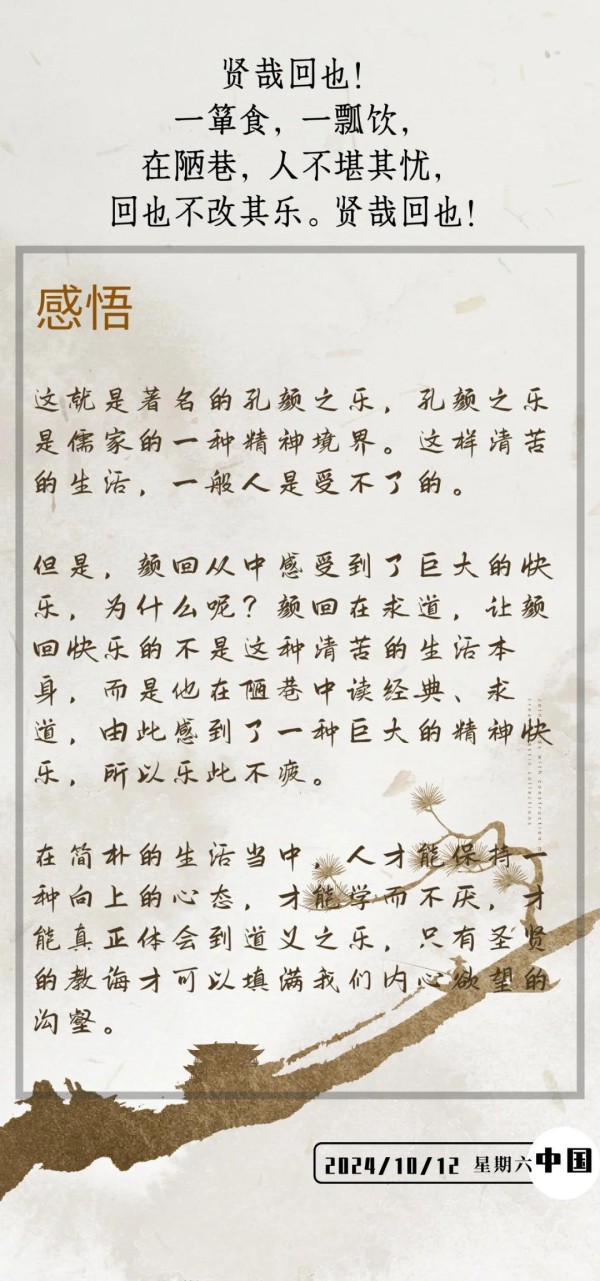 贤哉回也！
一箪食，一瓢饮，
在陋巷，人不堪其忧，
回也不改其乐。贤哉回也！
感悟
这就是著名的孔颜之乐，孔颜之乐
是儒家的一种精神境界。这样清苦
的生活，一般人是受不了的。
但是，颜回从中感受到了巨大的快
乐，为什么呢？颜回在求道，让颜
回快乐的不是这种清苦的生活本
身，而是他在陋巷中读经典、求
道，由此感到了一种巨大的精神快
乐，所以乐此不疲。
在简朴的生活当中，人才能保持一
种向上的心态，才能学而不厌，才
能真正体会到道义之乐，只有圣贤
的教诲才可以填满我们内心欲望的
沟壑。
2024/10/12 星期六 中国